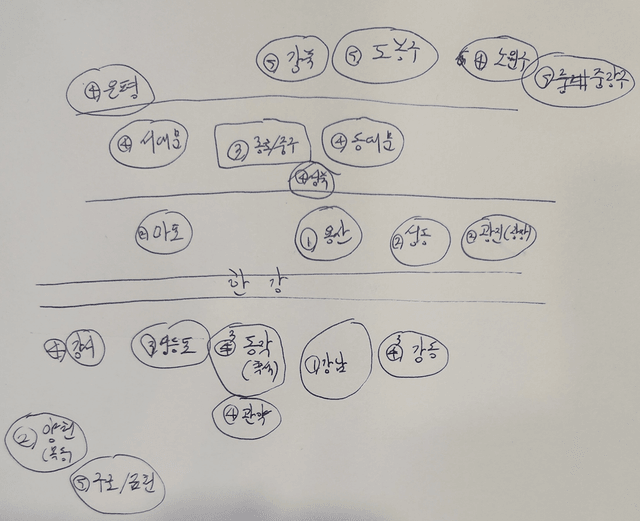 ⑤ 강북
⑤ 도봉구
④ 노원구
⑤ 중랑구
④ 은평
④ 서대문
③ 종로/중구
④ 동대문
④ 성북
② 마포
① 용산
② 성동
② 광진(광장)
한 강
④ 강서
③ 영등포
3 ④ 동작
(흑석)
① 강남
3 ④ 강동
④ 관악
② 양천
(목동)
⑤ 구로/금천